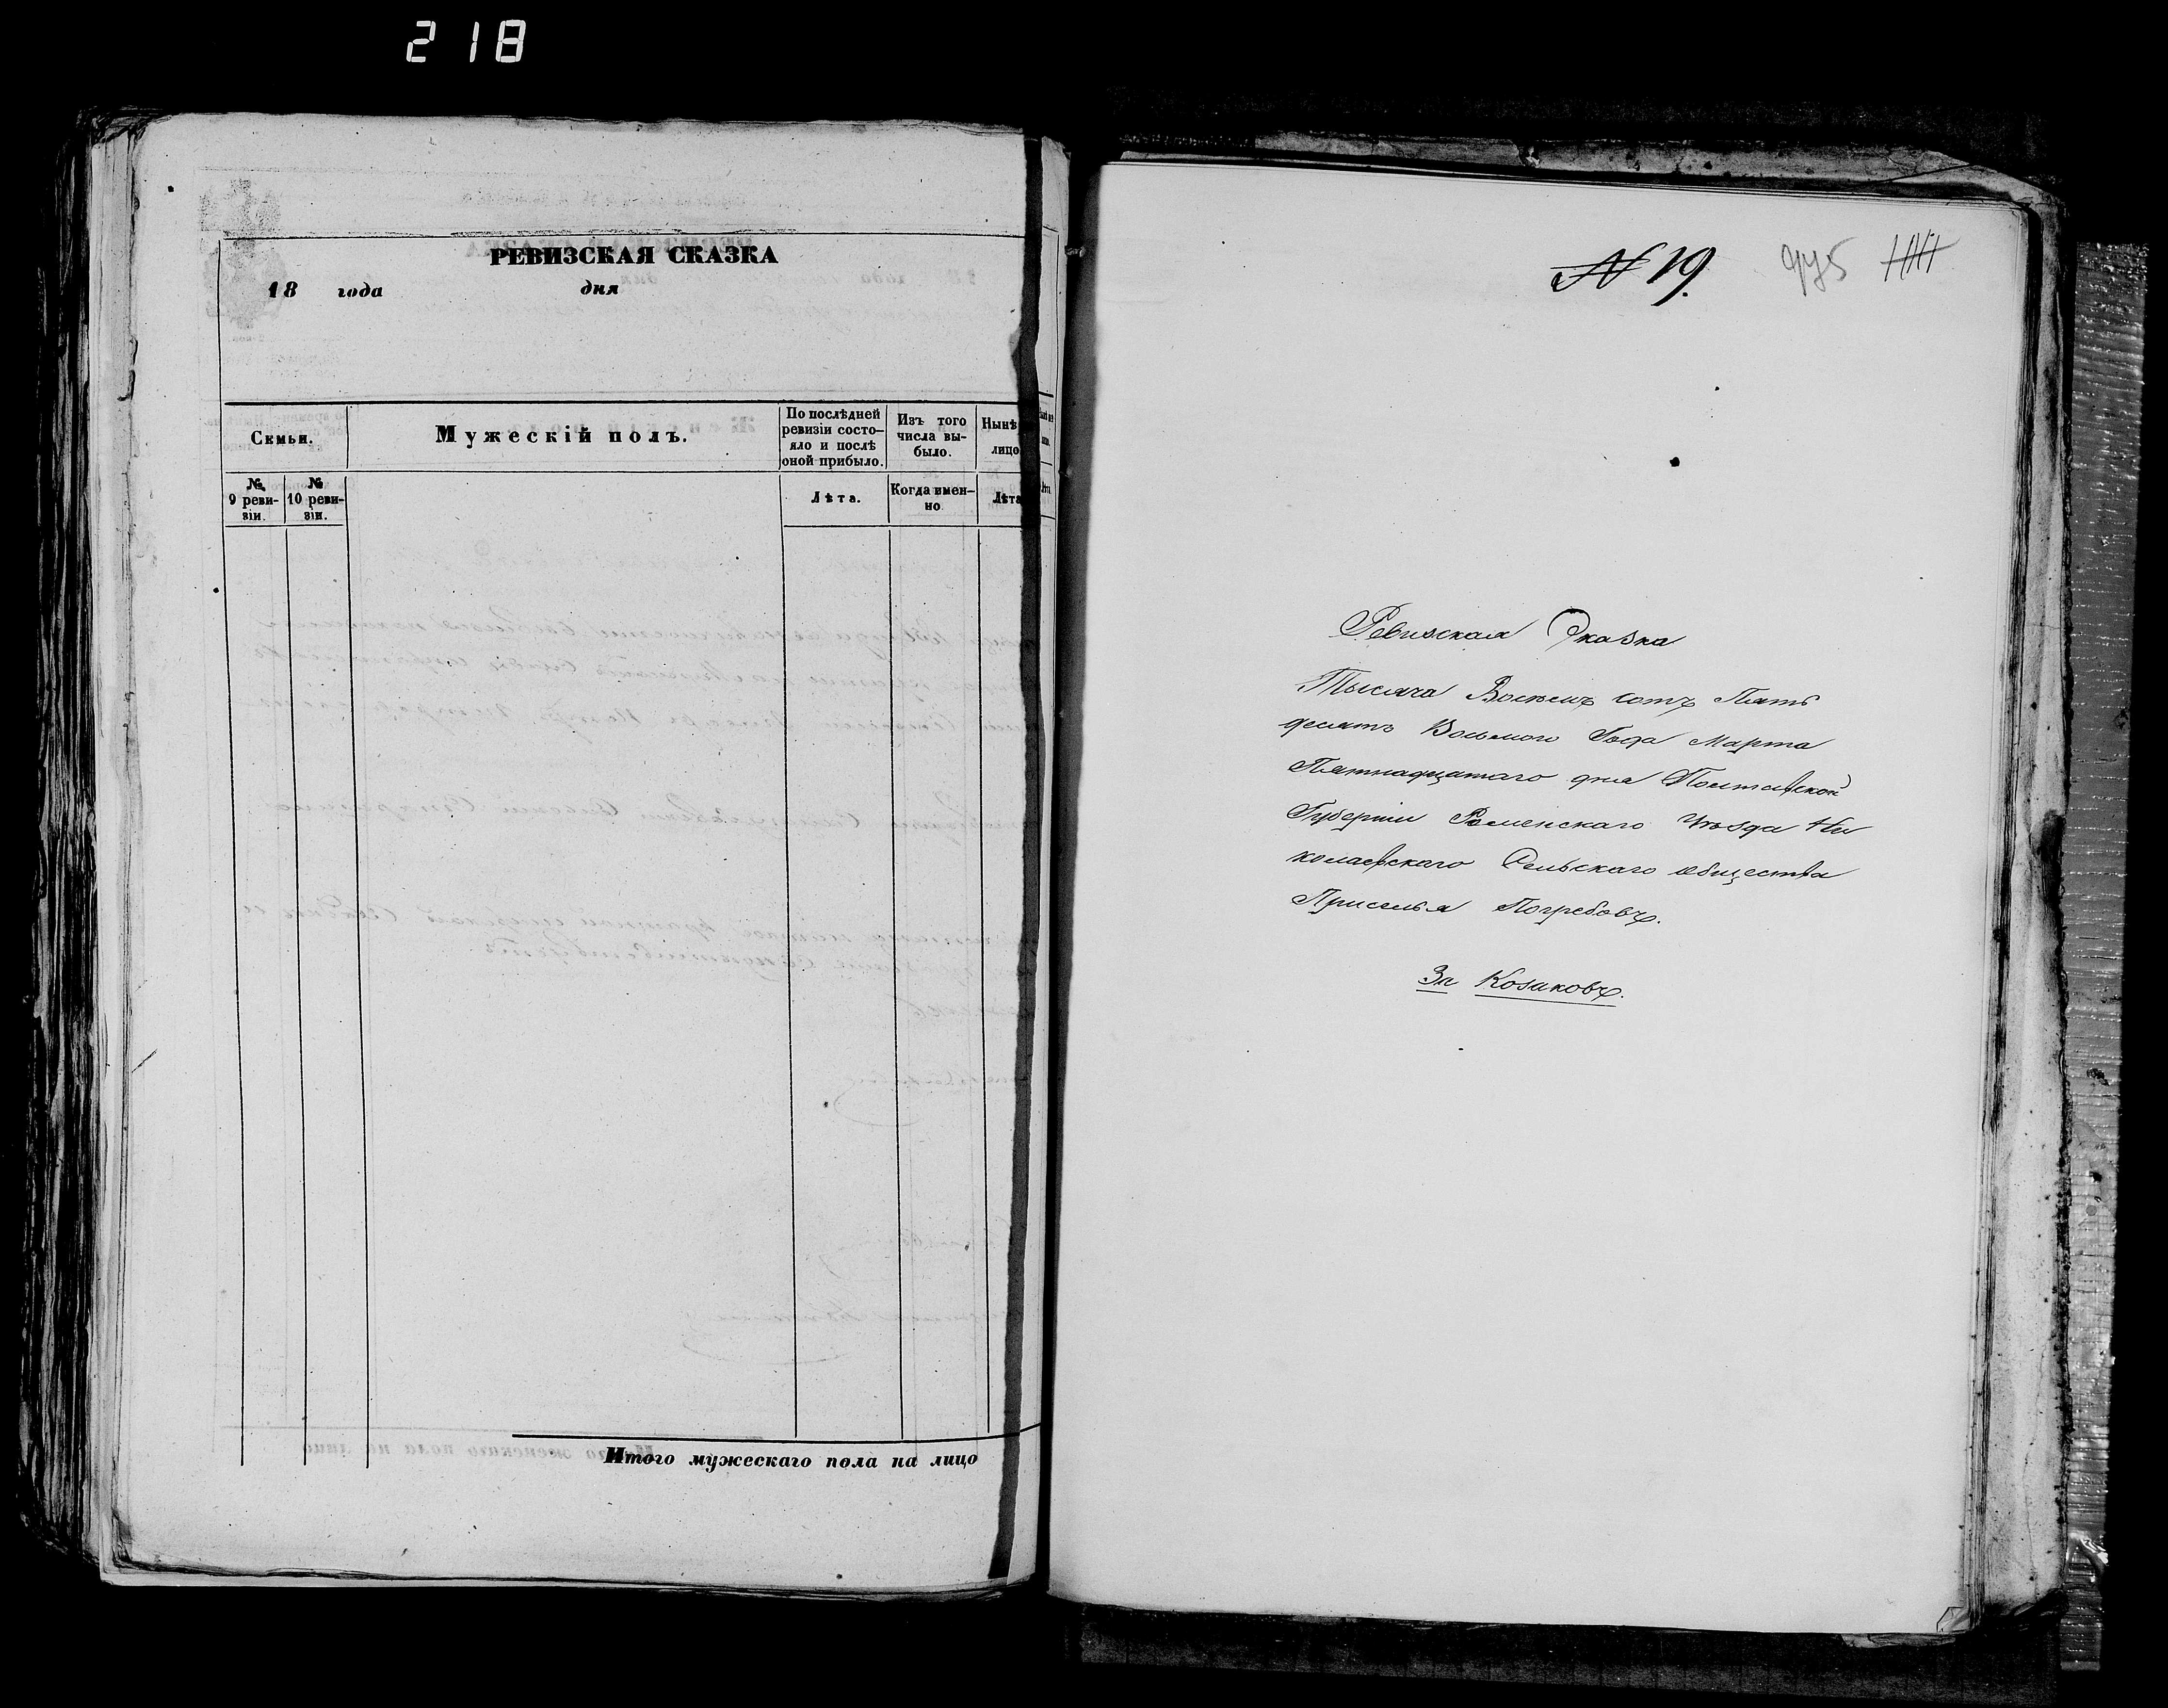 218
РЕВИЗСКАЯ СКАЗКА
18 года дня
Скмьи.
Мужескій полъ.
По послѣдней
ревизіи состо-
яло и послѣ
оной прибыло.
Изъ того
числа вы-
было.
Нынѣ
лицо
№
9 реви-
зіи.
№
10 реви-
зіи.
Лѣта.
Когда имен-
но
Лѣта
Итого мужескаго пола на лицо
№ 19.
975
Ревизская Сказка
Тысяча Восемь сотъ Пять
десятъ Восьмого Года Марта
Пятнадцатаго дня Полтавской
Губерніи Роменскаго Уѣзда Ни
колаевскаго Сельскаго общества
Приселья Погребовъ.
За Козаковъ.